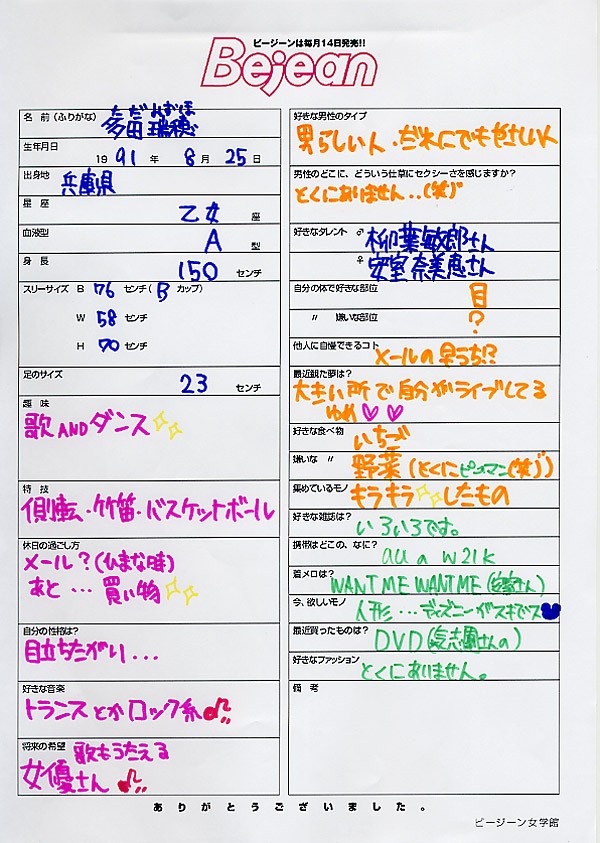 ビージーンは毎月14日発売!!
Bejean
名 前(ふりがな) ただみずほ
多田 瑞穂
生年月日
1991年 8月 25日
出身地 兵庫県
星 座 乙女 座
血液型 A 型
身 長 150 センチ
スリーサイズ B 76 センチ(B カップ)
W 58 センチ
H 70 センチ
足のサイズ 23 センチ
趣 味
歌ANDダンス
特 技
側転・竹笛・バスケットボール
休日の過ごし方
メール?(ひまな時)
あと…買い物
自分の性格は?
目立ちたがり...
好きな音楽
トランスとかロック系
将来の希望 歌もうたえる
女優さん
好きな男性のタイプ
男らしい人・だれにでもやさしい人
男性のどこに、どういう仕草にセクシーさを感じますか?
とくにありません..(笑)
好きなタレント ♂ 柳葉敏郎さん
♀ 安室奈美恵さん
自分の体で好きな部位 目
〃 嫌いな部位 ?
他人に自慢できるコト メールの早うち!?
最近観た夢は?
大きい所で自分がライブしてる
ゆめ♡♡
好きな食べ物 いちご
嫌いな 〃 野菜(とくにピーマン(笑))
集めているモノ キラキラしたもの
好きな雑誌は? いろいろです。
携帯はどこの、なに? au a W21K
着メロは? WANT ME WANT ME(安室さん)
今、欲しいモノ 人形…ディズニーがスキでス
最近買ったものは? DVD(氣志團さんの)
好きなファッション とくにありません。
備 考
ありがとうございました。
ビージーン女学館